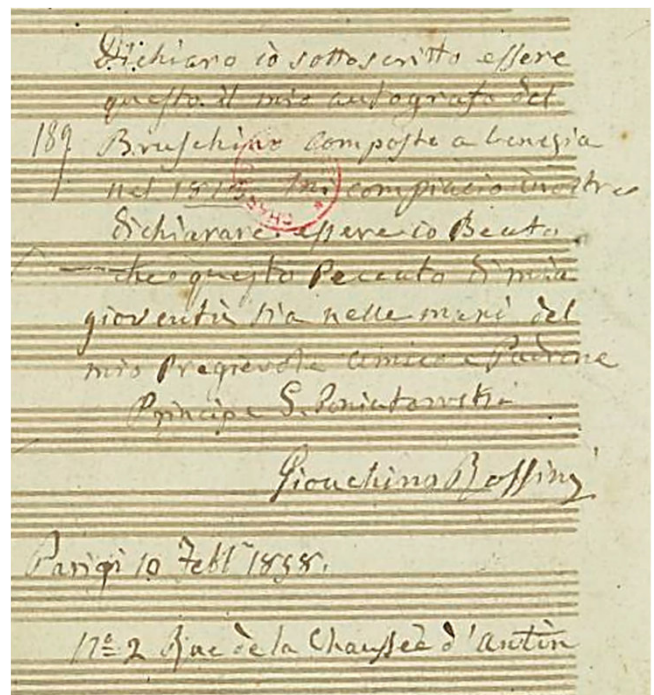 Dichiaro io sottoscritto essere
questo il mio autografo del
189 Bruschino composto a Venezia
nel 1813. Mi compiacio inoltre
dichiarare essere io Beato
che questo Peccato di mia
gioventù sia nelle mani del
mio Pregievole Amico e Padrone
Principe G. Poniatowski
Giouchino Rossini
Parigi 10 Febb. 1858.
Nº 2 Rue de la Chaussée d'Antin